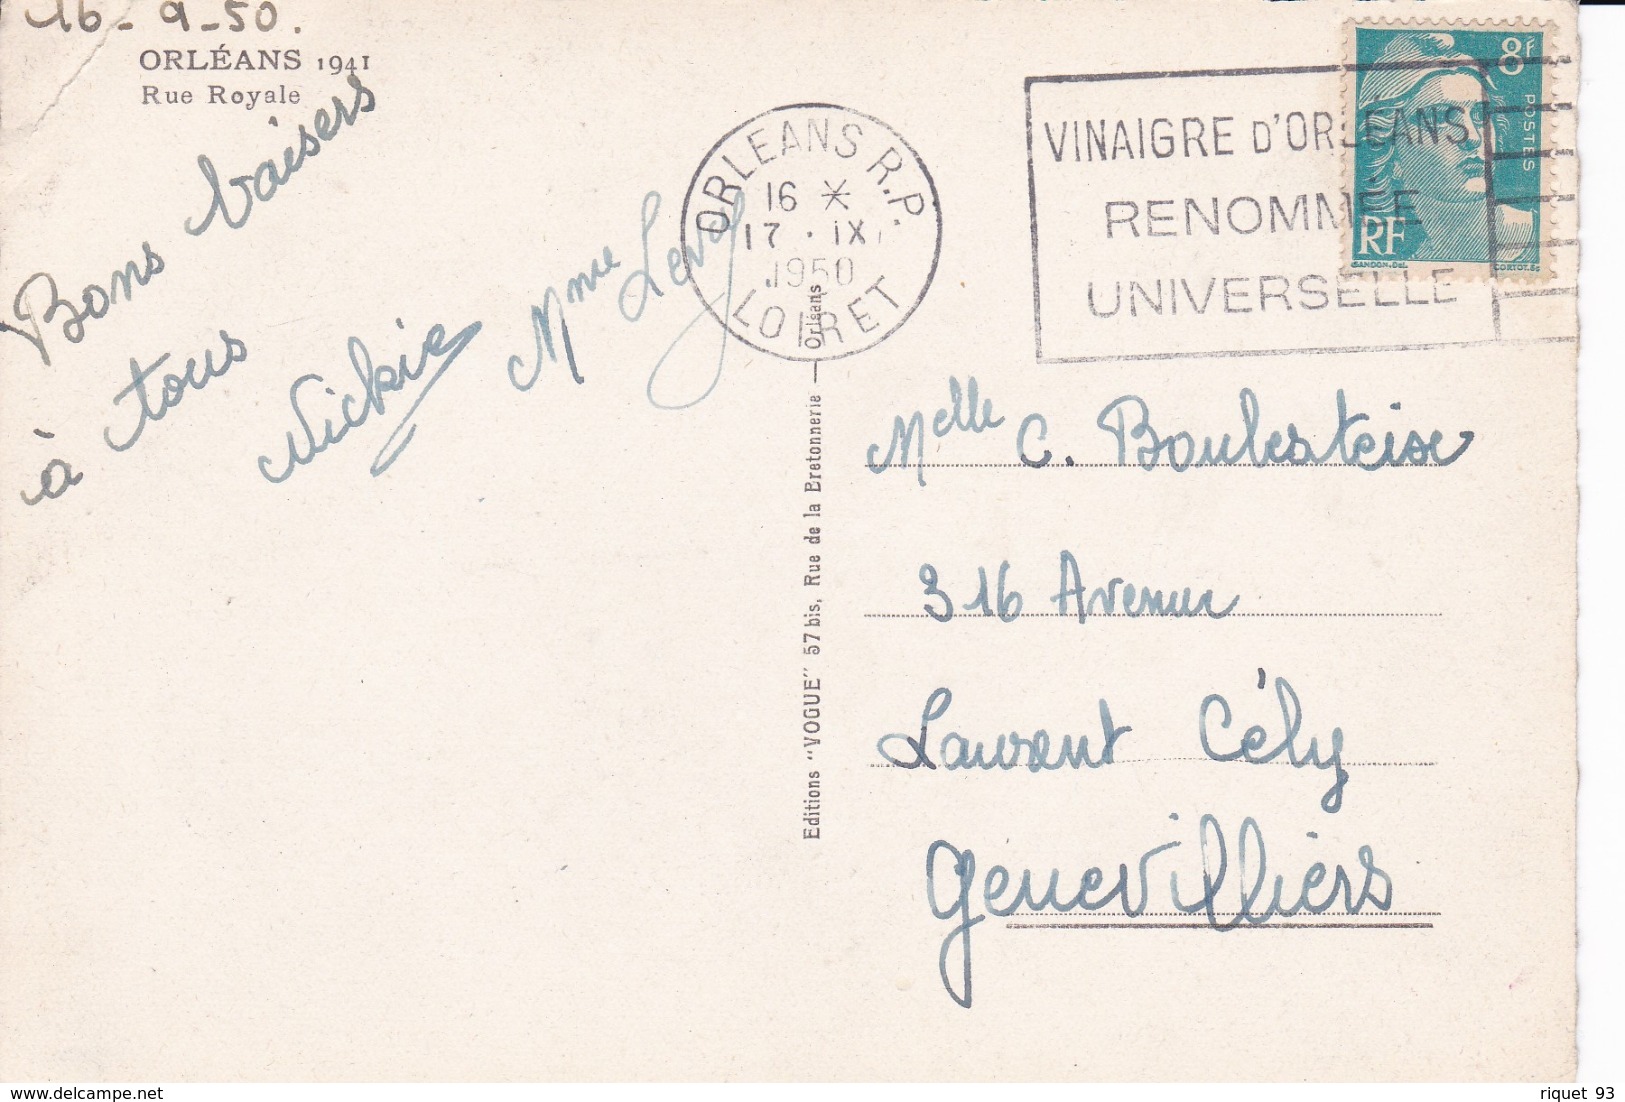 16-9-50.
ORLÉANS 1941
Rue Royale
Bons baisers
à tous
Nickie
Mme Levy
ORLEANS R.P.
16 *
17 · IX
1950
LOIRET
VINAIGRE D'ORLÉANS
RENOMMÉE
UNIVERSELLE
8F
POSTES
RF
GANDON.Del.
CORTOT.Sc
Editions "VOGUE" 57 bis, Rue de la Bretonnerie — Orléans
Melle C. Boulesteise
316 Avenue
Laurent Cély
Genevilliers
delcampe.net
riquet 93